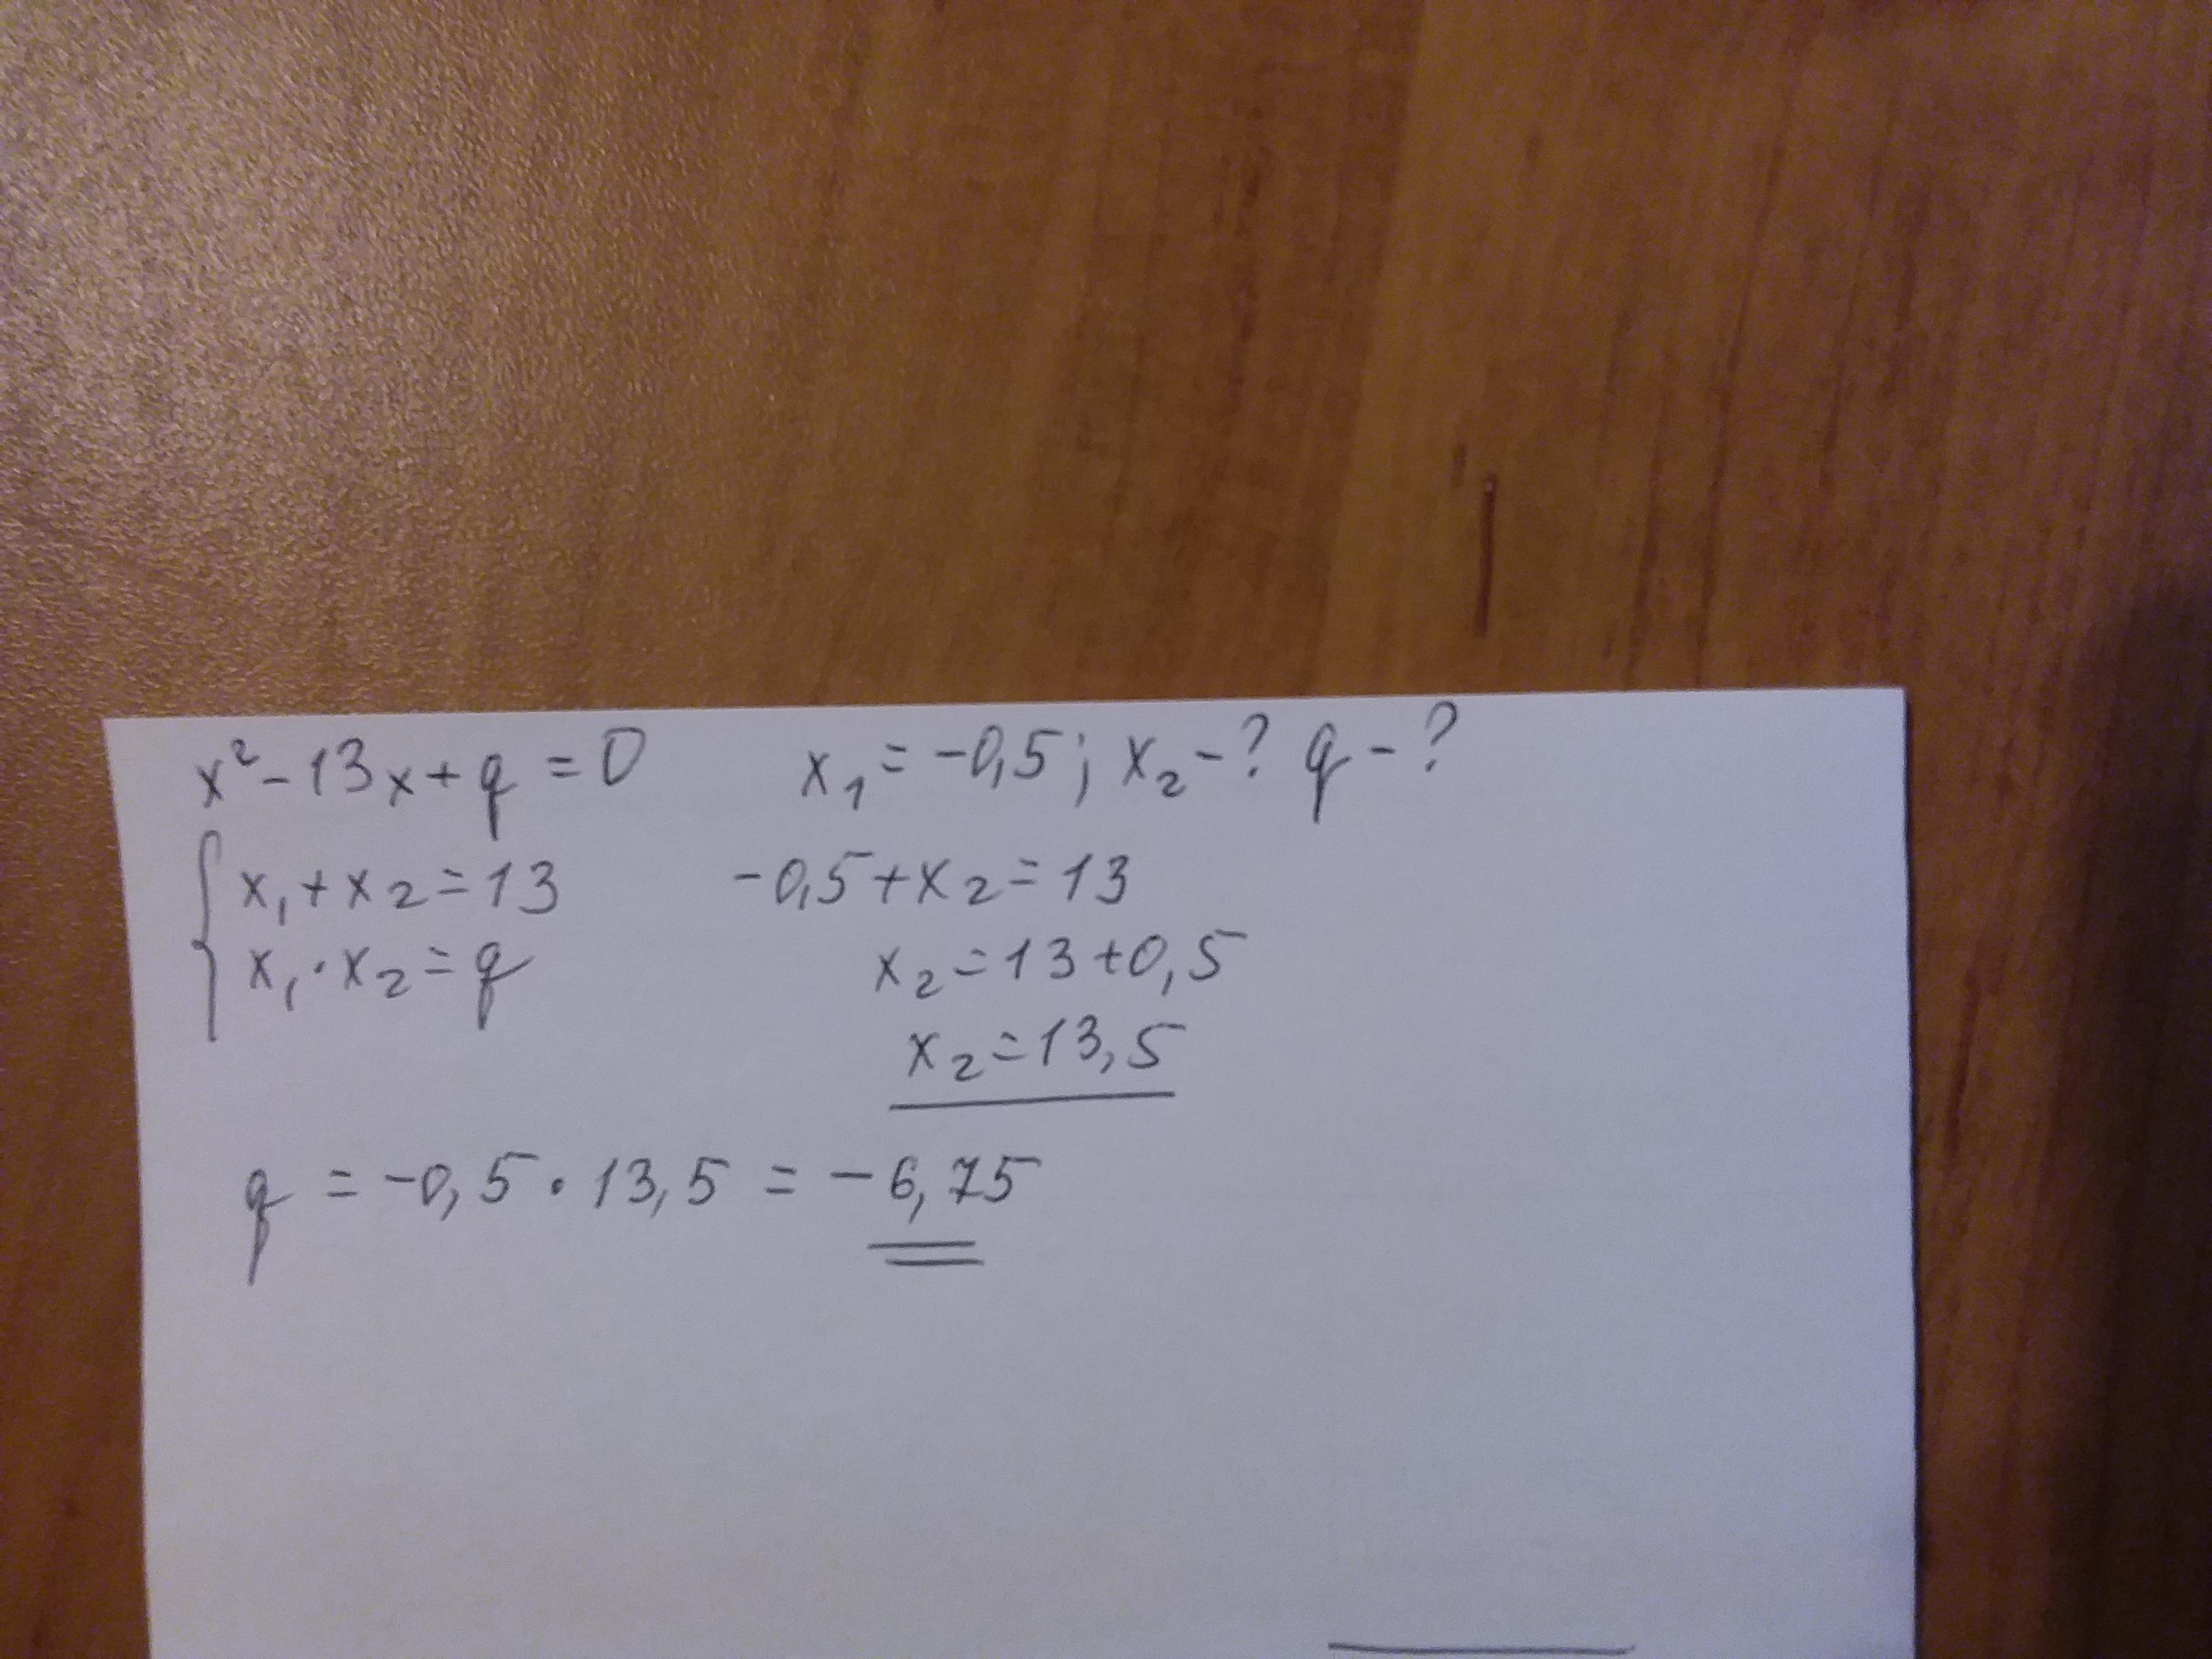 x² - 13x + q = 0    x₁ = -0,5; x₂ - ? q - ?
{ x₁ + x₂ = 13    -0,5 + x₂ = 13
x₁ · x₂ = q    x₂ = 13 + 0,5
x₂ = 13,5
q = -0,5 · 13,5 = -6,75